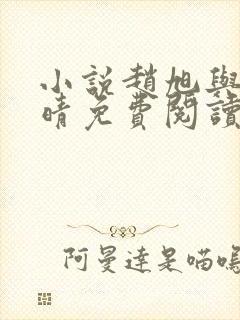 小説趙旭與
晴免費閱讀
阿曼達是喵嗚